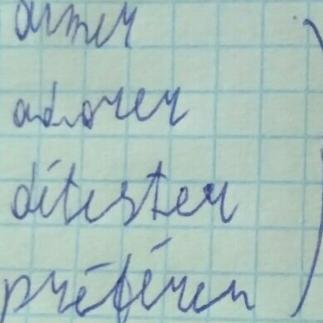 aimer
adorer
détester
préférer